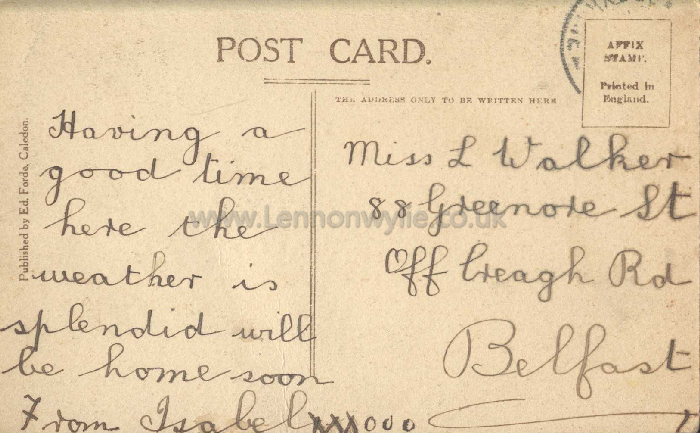 POST CARD.
AFFIX
STAMP.
Printed in
England.
THE ADDRESS ONLY TO BE WRITTEN HERE
Published by Ed. Forde, Caledon.
Having a
good time
here the
weather is
splendid will
be home soon
From Isabel xxxooo
Miss L Walker
88 Greenore St
Off Creagh Rd
Belfast
www.Lennonwylie.co.uk